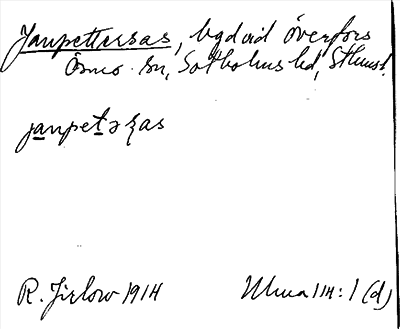 Janpettersas, bgd vid Överfors
Ösmo sn, Sotholms hd, Sthms l.
janpetəʒas
R. Jirlow 1914
Ulma 114:1 (d)